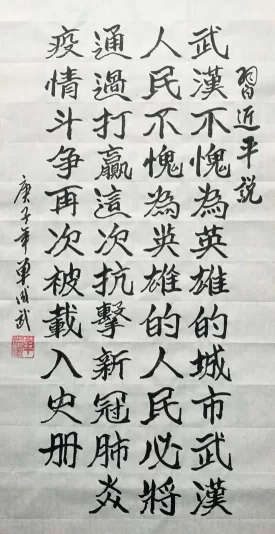 習近平說
武漢不愧為英雄的城市武漢
人民不愧為英雄的人民必將
通過打贏這次抗擊新冠肺炎
疫情斗争再次被載入史册
庚子年